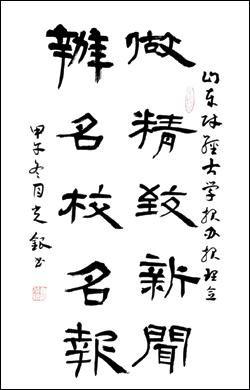 山东财經大学报办报理念
做精致新聞
辦名校名報
甲午冬月光銀书